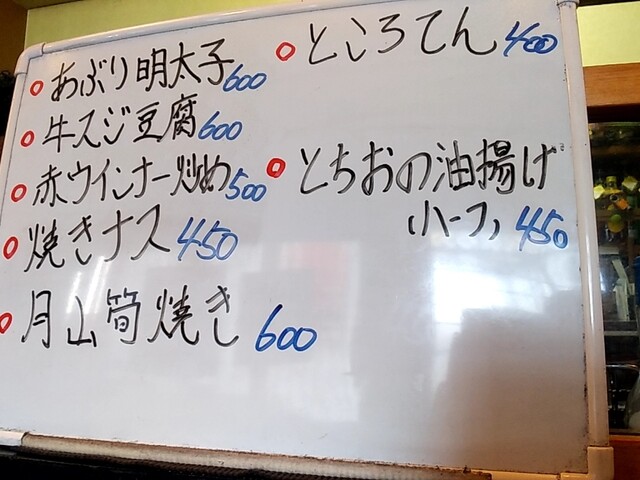 あぶり明太子600
牛スジ豆腐600
赤ウインナー炒め500
焼きナス450
月山筍焼き600
ところてん400
とちおの油揚げ
ハーフ450